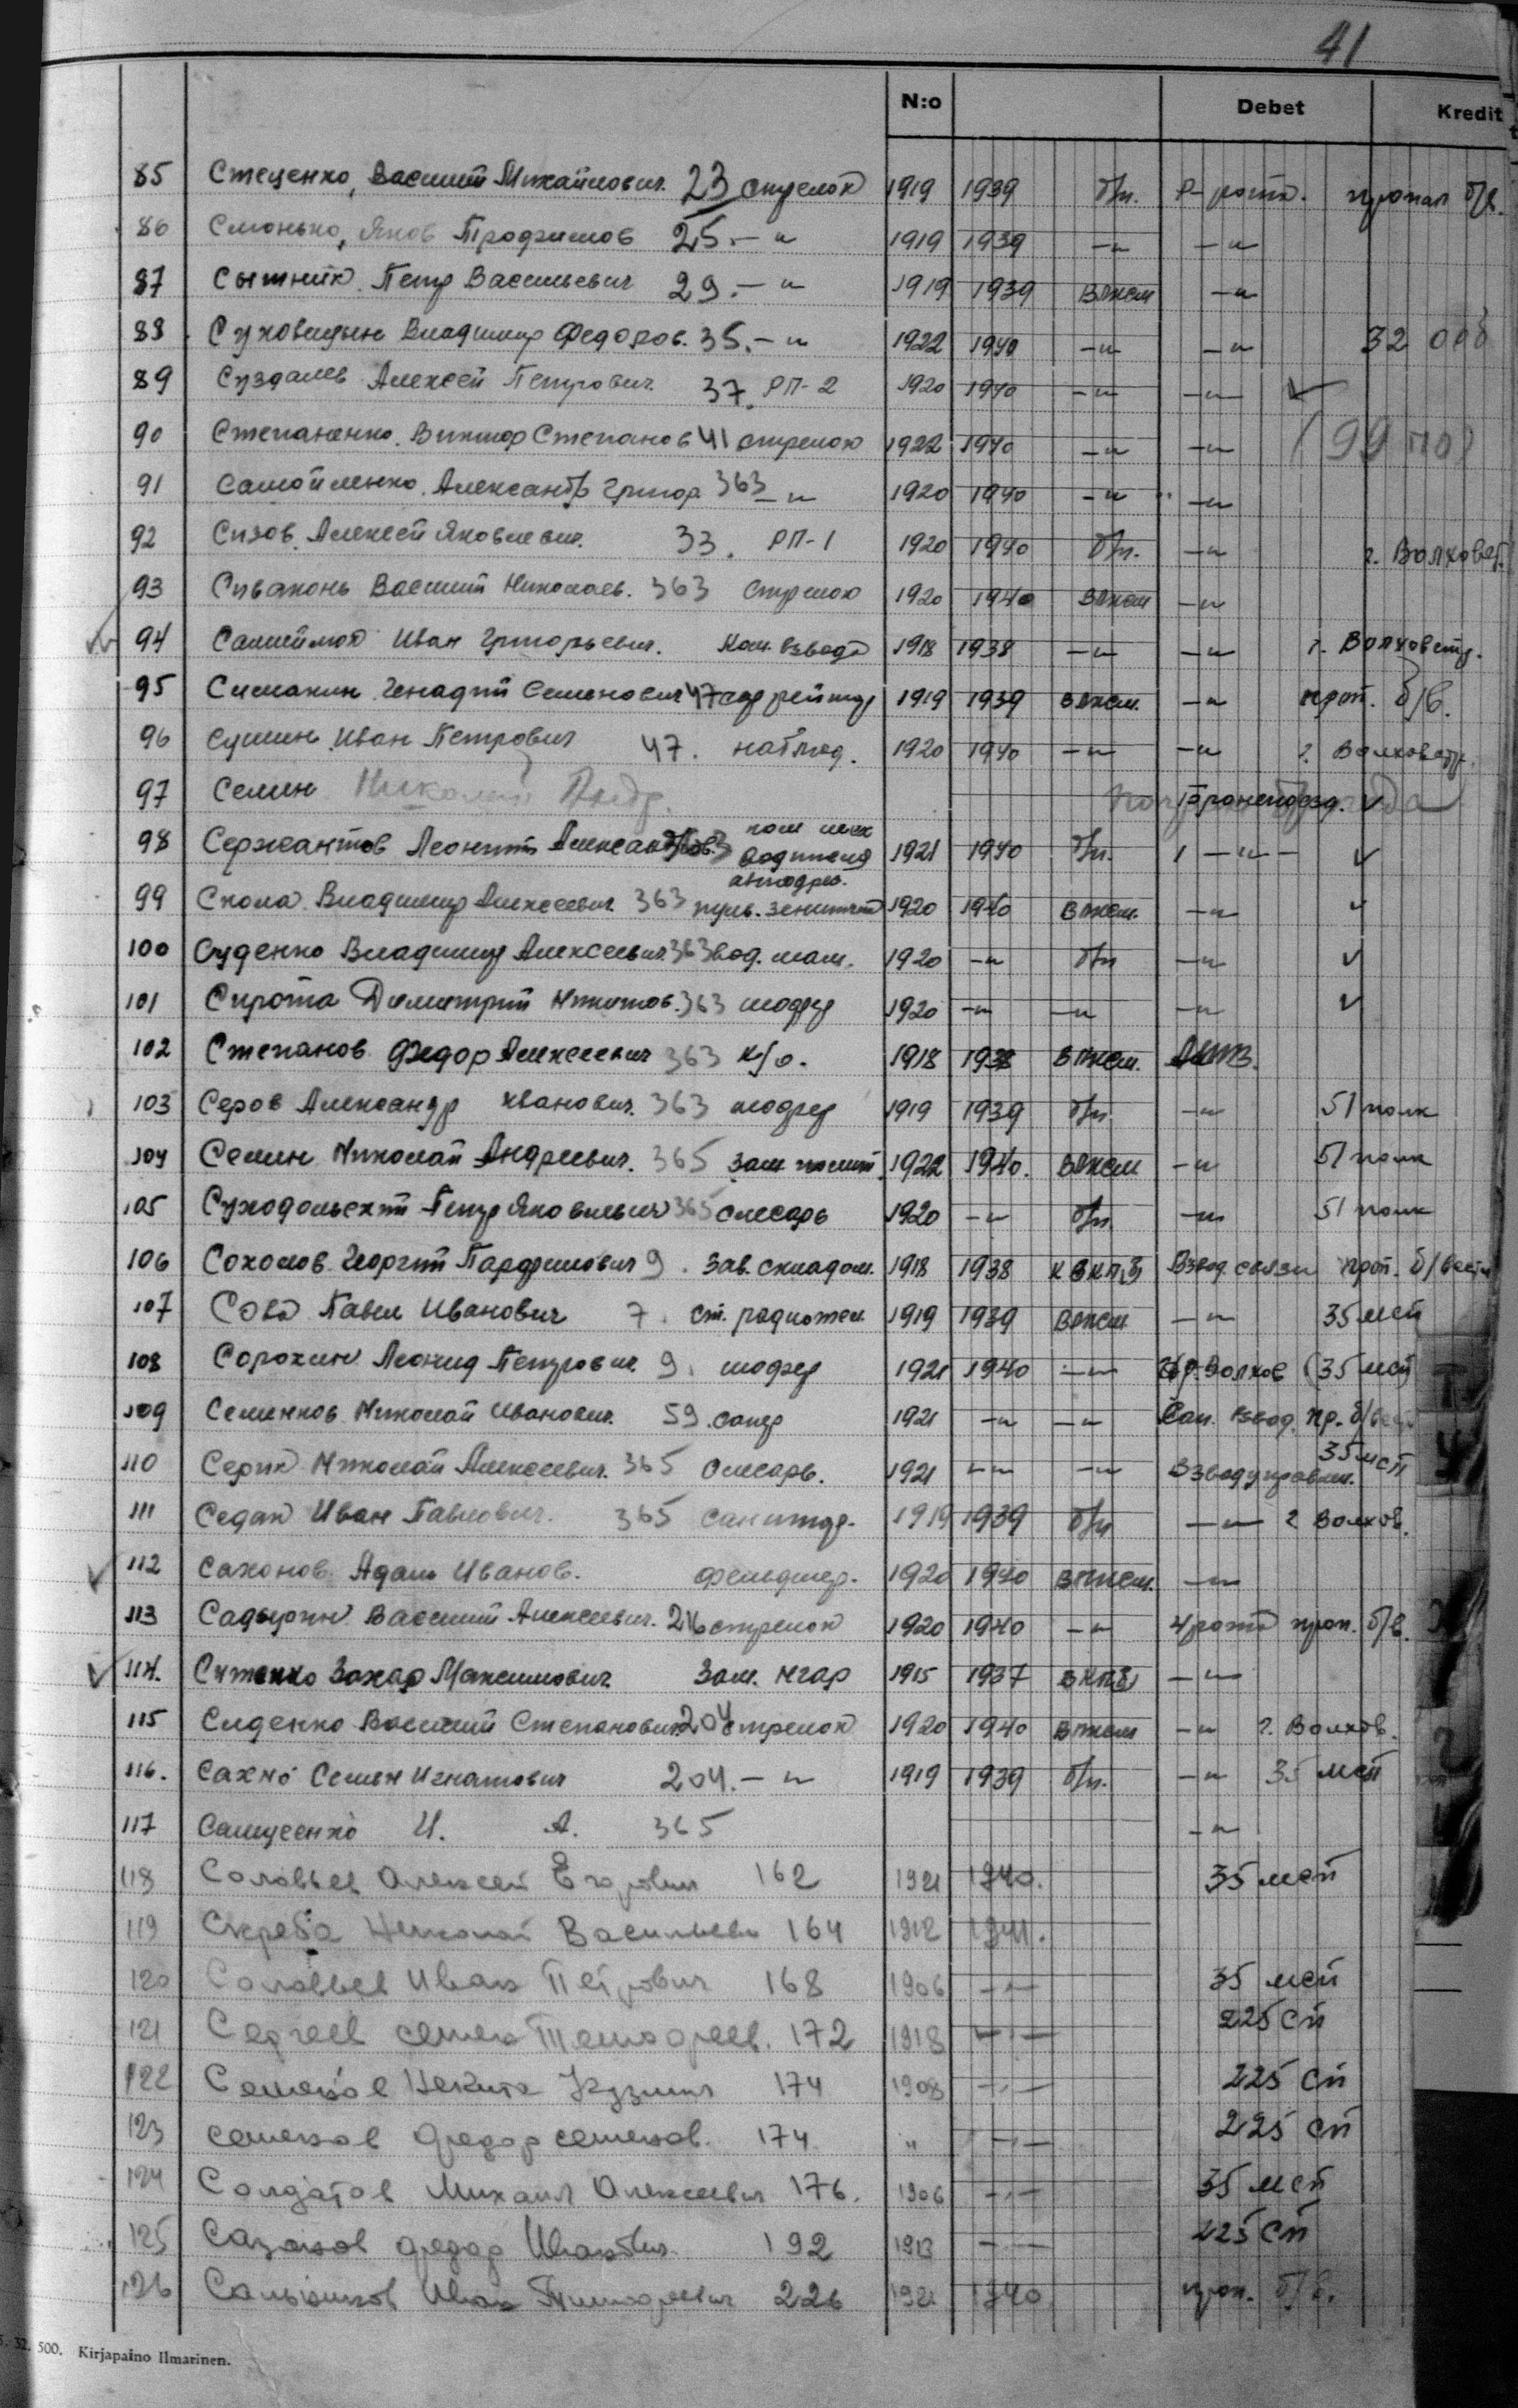 41
N:o Debet Kredit
85 Стеценко, Василий Михайлович. 23 стрелок 1919 1939 б/п. Р-рота. пропал б/в.
86 Смонько, Яков Трофимов 25. —"— 1919 1939 —"— —"—
87 Сытник Петр Васильевич 29. —"— 1919 1939 ВЛКСМ —"—
88 Суховицын Владимир Федоров. 35. —"— 1922 1940 —"— —"— 32 ооб
89 Суздалев Алексей Петрович 37. РП-2 1920 1940 —"— —"— ✓
90 Степаненко Виктор Степанов 41 стрелок 1922 1940 —"— —"— (99 по)
91 Самойленко Александр Григор. 363 —"— 1920 1940 —"— —"—
92 Сизов Алексей Яковлевич. 33. РП-1 1920 1940 б/п. —"— г. Волховст.
93 Сиваконь Василий Николаев. 363 Стрелок 1920 1940 ВЛКСМ —"—
94 Иван Григорьевич. Ком. взвода 1918 1938 —"— —"— г. Волховстр.
95 Симакин Генадий Семенович 47 1919 1939 ВЛКСМ. —"— проп. б/в.
96 Сушин Иван Петрович 47. наблюд. 1920 1940 —"— —"— г. Волховстр.
97 Семин Николай Андр. Бронепоезд. ✓
98 Сержантов Леонтий Александров. пом мех водителя 1921 1940 б/п. 1 —"— ✓
автодрез.
99 Скола Владимир Алексеевич 363 пул. зенитчик 1920 1940 ВЛКСМ. —"— ✓
100 Суденко Владимир Алексеевич 363 вод. маш. 1920 —"— б/п —"— ✓
101 Сирота Димитрий Никитов. 363 шофер 1920 —"— —"— —"— ✓
102 Степанов Федор Алексеевич 363 к/о. 1918 1938 ВЛКСМ.
103 Серов Александр Иванович. 363 шофер 1919 1939 б/п. —"— 51 полк
104 Семин Николай Андреевич. 365 зам полит. 1922 1940. ВЛКСМ —"— 51 полк
105 Суходольский Петр Яковлевич 365 слесарь 1920 —"— б/п. —"— 51 полк
106 Соколов Георгий Парфимович 9. зав. складом. 1918 1938 КВКПБ Взвод связи проп. б/вести
107 Сова Павел Иванович 7. ст. радиотел. 1919 1939 ВЛКСМ —"— 35 мсп
108 Сорокин Леонид Петрович. 9. шофер 1921 1940 —"— Волхов (35 мсп)
109 Семенков Николай Иванович. 59. сапер 1921 —"— —"— Сап. взвод. пр. б/вест
110 Серик Николай Алексеевич. 365 Слесарь. 1921 —"— —"— Взвод управлен. 35 мсп
111 Седак Иван Павлович. 365 санитар. 1919 1939 б/п —"— г Волхов.
112 Сахонов Адам Иванов. фельдшер. 1920 1940 ВЛКСМ. —"—
113 Василий Алексеевич. 216 стрелок 1920 1940 —"— 4 рота проп. б/в.
114. Ситенко Захар Максимович. Зам. 1915 1937 ВКПБ) —"—
115 Сиденко Василий Степанович 204 стрелок 1920 1940 ВЛКСМ —"— г. Волхов.
116. Сахно Семен Игнатович 204. —"— 1919 1939 б/п. —"— 35 мсп
117 Самусенко И. А. 365 —"—
118 Соловьев Алексей Егорович 162 1921 1940. 35 мсп
119 Скреба Николай Васильевич 164 1912 1941.
120 Соловьев Иван Петрович 168 1906 —"— 35 мсп
121 Сергеев Семен Тимофеев. 172 1918 —"— 225 сп
122 Семенов Никита Кузьмич 174 1908 —"— 225 сп
123 Семенов Федор Семенов. 174 " —"— 225 сп
124 Солдатов Михаил Алексеевич 176. 1906 —"— 35 мсп
125 Сазонов Федор Иванович 192 1913 —"— 225 сп
126 Сальников Иван Тимофеевич 226 1921 1940 проп. б/в.
32. 500. Kirjapaino Ilmarinen.